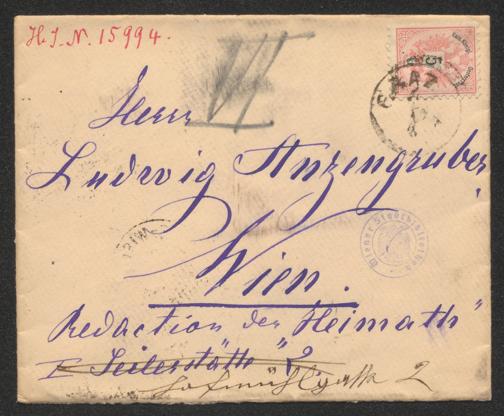 H.I.N. 15994.
VI
GRAZ
Herrn
Ludwig Anzengruber
WIEN
Wiener Stadtbibliothek
Wien.
Redaction der "Heimath"
I Seilerstätte 2
Hofmühlgasse 2